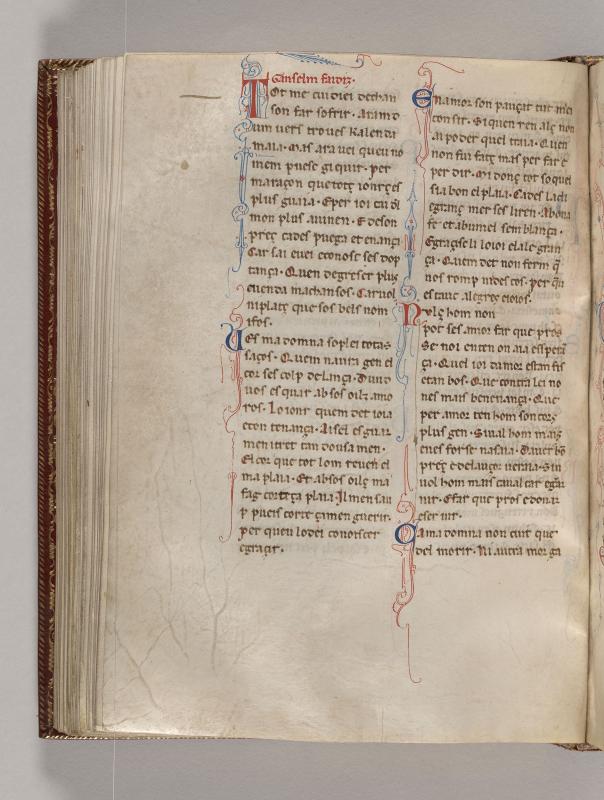 Anselm faidiz.
Tot me cuidiei dechan
son far sofrir. Aram o
dum uers troues kalenda
maia. Mas ara uei queu no
inem puesc giquir. per
maraçon quetotç iorns es
plus guaia. Eper ioi cui di
mon plus auinen. E deson
preç cades pueia et enança
Car sai euei econosc ses dop
tança. Quen degresser plus
euenda machansos. Car uol
niplatç que sos bels nom
ifos.
Ves ma domna soplei totas
saços. Quem naura gen el
cor ses colp de lança. Dun d
uos es quar ab sos oilz amo
ros. Lo iorn quem det ioia
econ tenança. Aisel esguar
men itret tan dousamen.
El cor que tot lom reuen el
ma plaia. Et absos oilç ma
fag corteça plaia. Il men sau
p pueis corteçamen guerir.
per queu lodei conoiscer
egraçir.
En amor son pauçat tut mei
consir. Si quen ren alç non
ai poder quel traia. Quen
non fui fatç mas per far e
per dir. Mi donç tot so quel
sia bon el plaia. Cades ladi
egranç merses liren. Abona
fe et abumel semblança.
Egraçisc li loioi elale gran
ça. Quem det non ferm q
nos romp nidescos. per qu
estauc alegres eioios.
Nulç hom non
pot ses amor far que pros
Se noi enten on aia esperā
ça. Quel ioi damor estan fis
etan bos. Que contra lei no
nes mais benenança. Que
per amor ten hom son corç
plus gen. Siual hom maiz
enes forse nasaia. Dauer bō
preç e delauçor ueraia. Siu
uol hom mais caualcar egār
nir. Efar que pros e donar
eser uir.
Ca ma domna non cuit que
del morir. Ni autra morç a